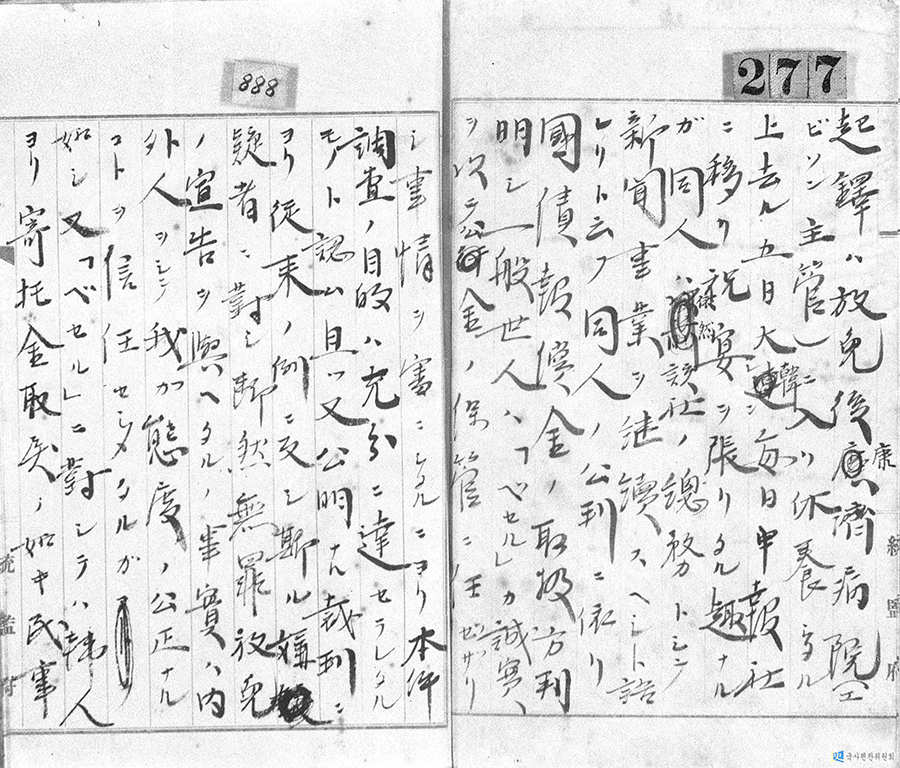 277
起鐸ハ放免後康濟病院(エ
ビソン主管)ニ入リ休養シタル
上去ル五日大韓毎日申報社
ニ移リ祝宴ヲ張リタル趣ナル
ガ同人ハ依然該社ノ總務トシテ
新聞事業ヲ継續スヘシト語
レリト云フ同人ノ公判ニ依リ
國債報償金ノ取扱方判
明シ一般世人ハ「ベセル」カ誠實
ヲ以テ公金ノ保管ニ任ゼザリ
統監府
888
シ事情ヲ審ニシタルニヨリ本件
調査ノ目的ハ充分ニ達セラレタル
モノト認ム且ツ又公明ナル裁判ニ
ヨリ従来ノ例ニ反シ斯ル嫌
疑者ニ對シ断然無罪放免
ノ宣告ヲ與ヘタルノ事實ハ内
外人ヲシテ我カ態度ノ公正ナル
コトヲ信任セシメタルガ
如シ又「ベセル」ニ對シテハ韓人
ヨリ寄托金取戻ノ如キ民事
統監府
국사편찬위원회